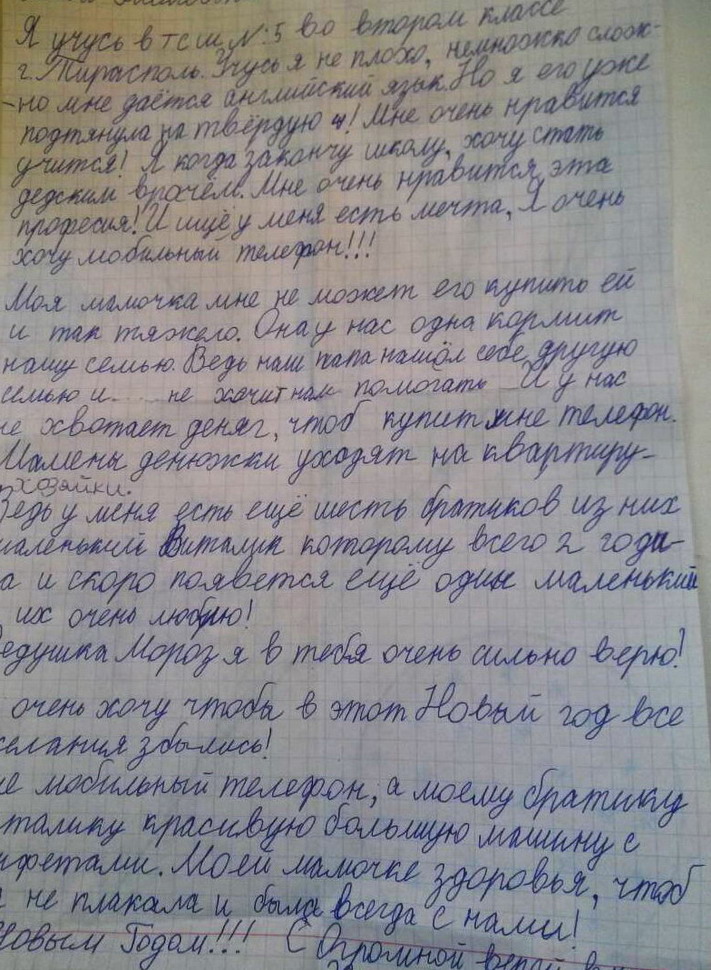 Я учусь в тсш №:5 во втором классе
г. Тирасполь. Учусь я не плохо, немножко слож-
-но мне даётся английский язык. Но я его уже
подтянула на твёрдую 4! Мне очень нравится
учится! Я когда закончу школу, хочу стать
дедским врачём. Мне очень нравится эта
професия! И ищё у меня есть мечта, Я очень
хочу мобильный телефон!!!
Моя мамочка мне не может его купить ей
и так тяжело. Она у нас одна кормит
нашу семью. Ведь наш папа нашол себе другую
семью и.... не хочит нам помогать И у нас
не хвотает деняг, чтоб купит мне телефон.
Мамены денюжки уходят на квартиру-
хозяйки.
Ведь у меня есть ещё шесть братиков из них
маленький Виталик которому всего 2 годи-
а и скоро появется ещё один маленький
их очень люблю!
Дедушка Мороз я в тебя очень сильно верю!
очень хочу чтобы в этот Новый год все
желания збылись!
не мобильный телефон, а моему братику
талику красивую большую машину с
нфетами. Моей мамочке здоровья, чтоб
не плакала и была всегда с нами!
Новым Годом!!! С Огромной верой